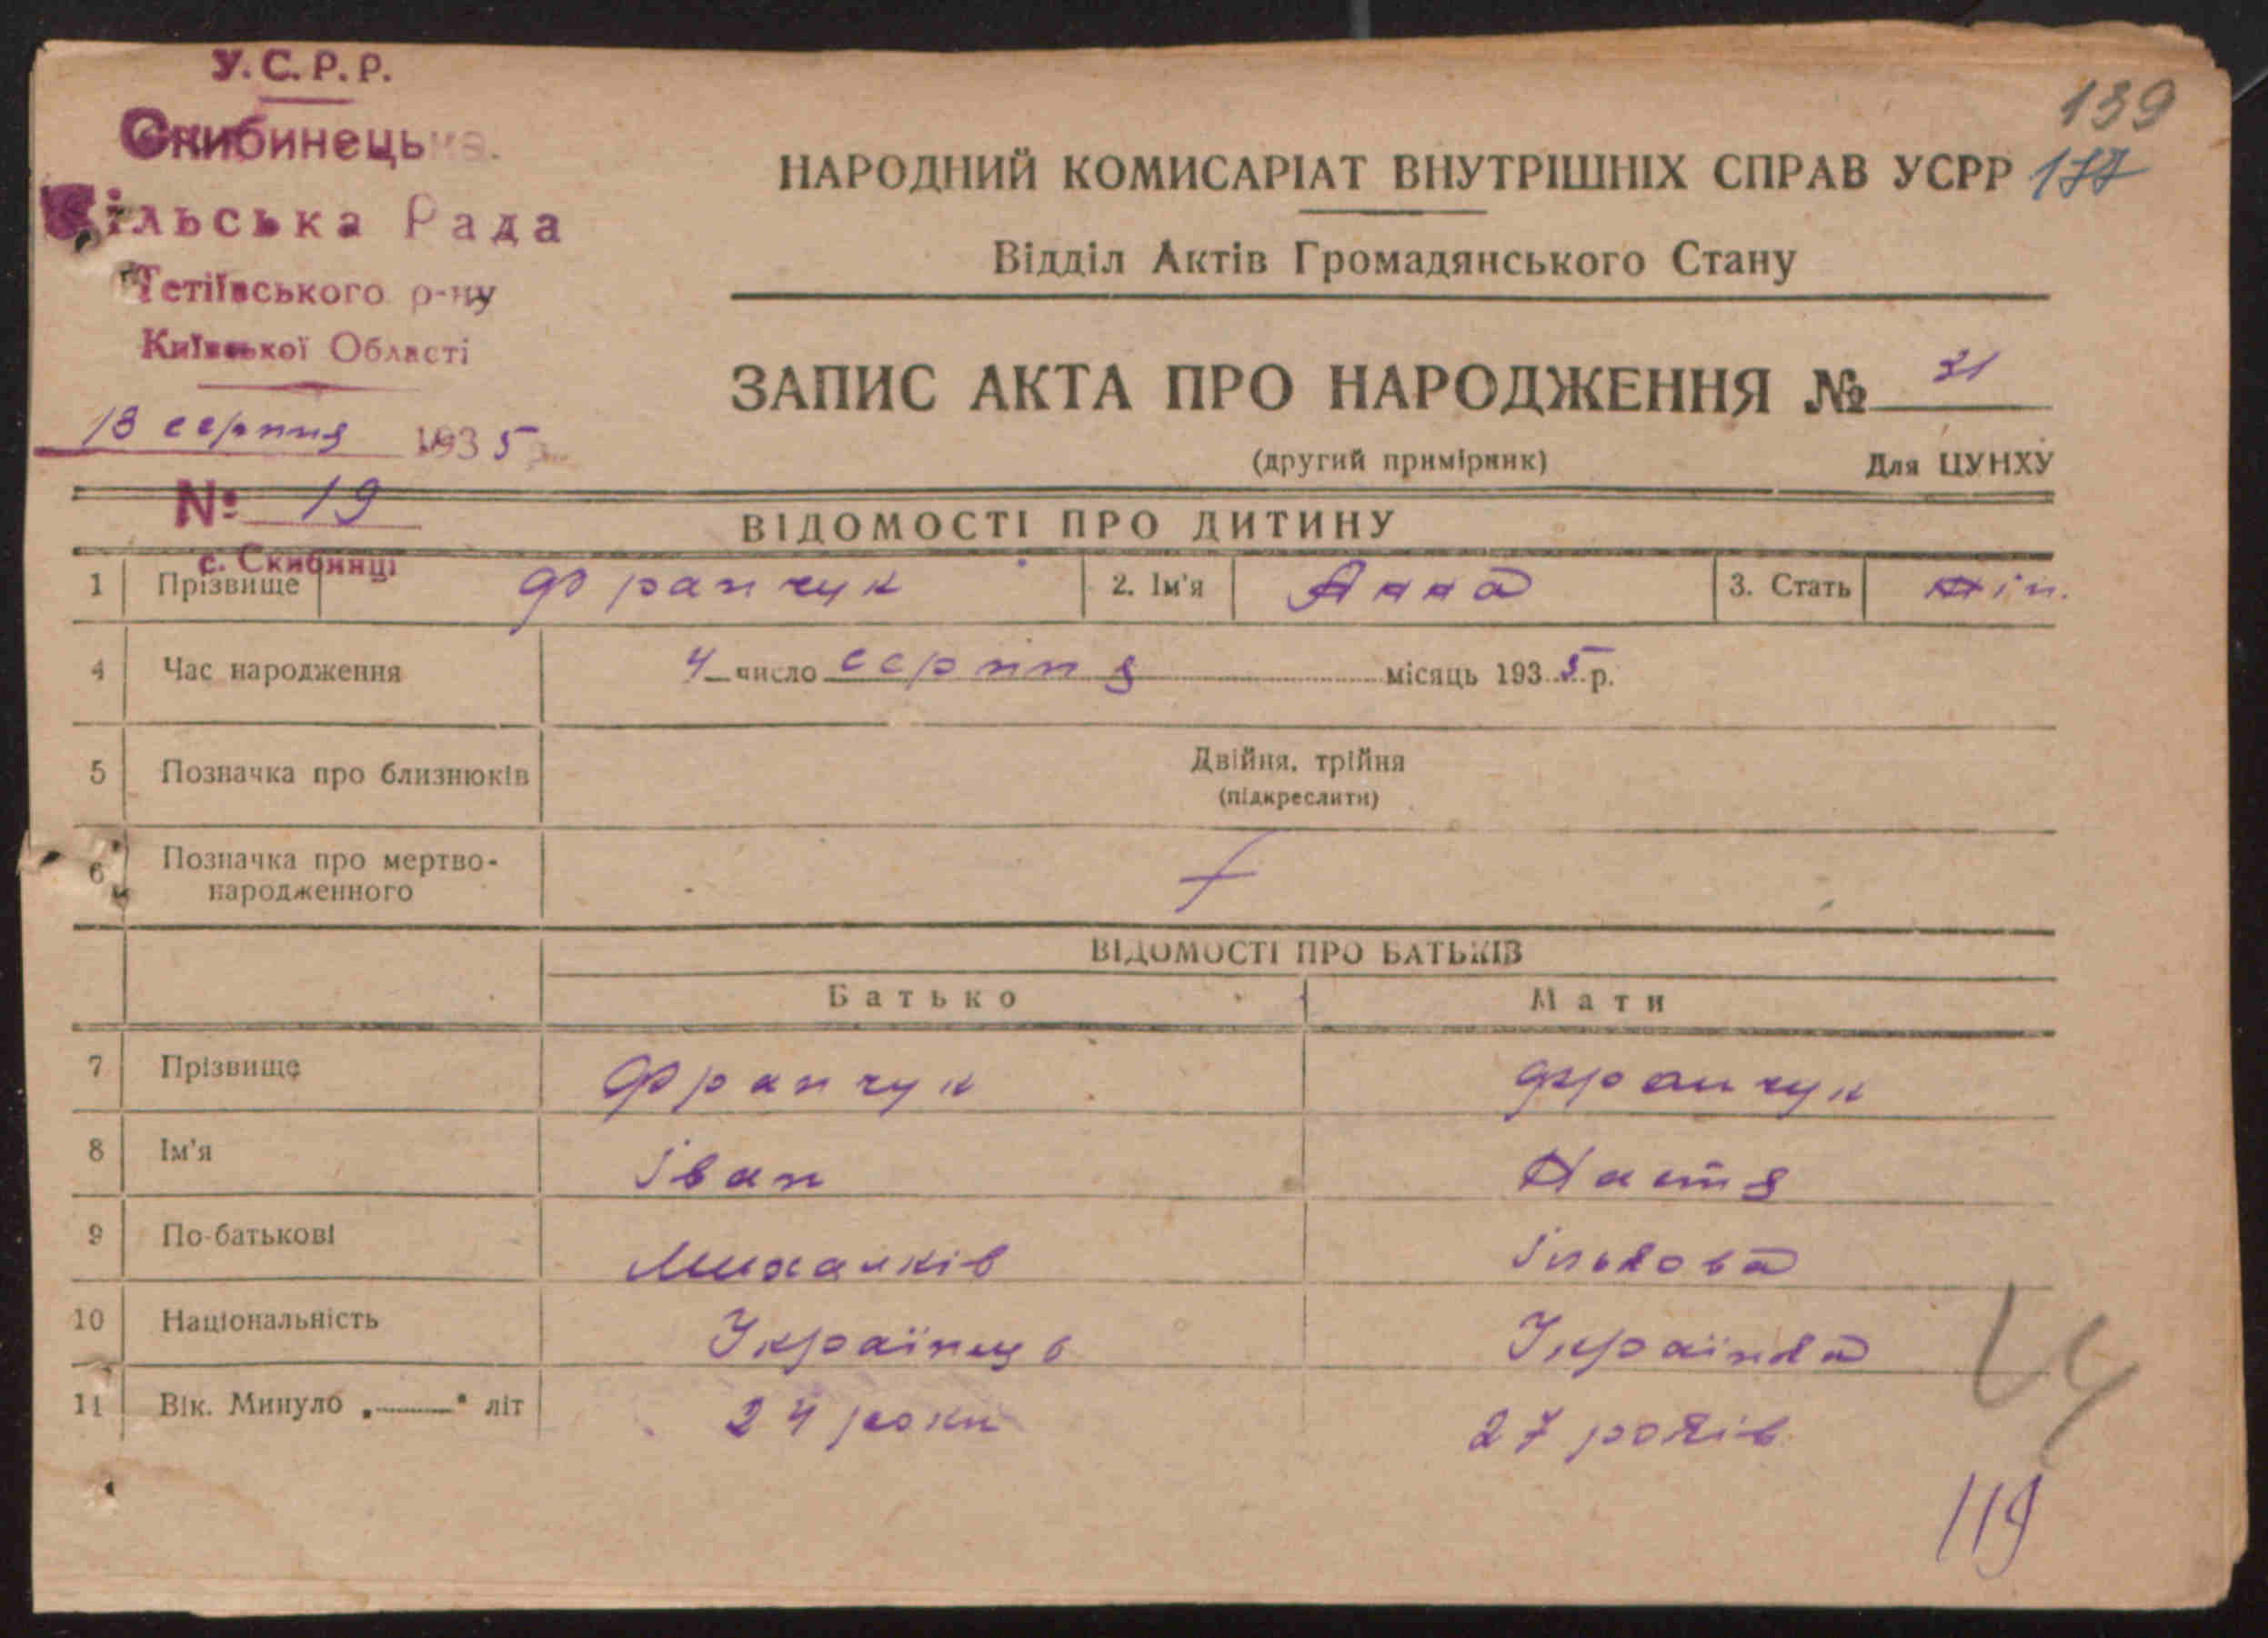 У.С.Р.Р.
Скибинецька
Сільська Рада
Тетіївського р-ну
Київської Області
13 серпня 1935
№ 19
с. Скибинці
139
177
НАРОДНИЙ КОМИСАРІАТ ВНУТРІШНІХ СПРАВ УСРР
Відділ Актів Громадянського Стану
ЗАПИС АКТА ПРО НАРОДЖЕННЯ № 31
(другий примірник) Для ЦУНХУ
ВІДОМОСТІ ПРО ДИТИНУ
1 Прізвище Франчук 2. Ім'я Анна 3. Стать жін.
4 Час народження 4 число серпня місяць 1935 р.
5 Позначка про близнюків Двійня, трійня
(підкреслити)
6 Позначка про мертво-
народженного
ВІДОМОСТІ ПРО БАТЬКІВ
Батько Мати
7 Прізвище Франчук Франчук
8 Ім'я Іван Настя
9 По-батькові Михалків Ількова
10 Національність Українць Українка
11 Вік. Минуло „ " літ 24 роки 27 років
119